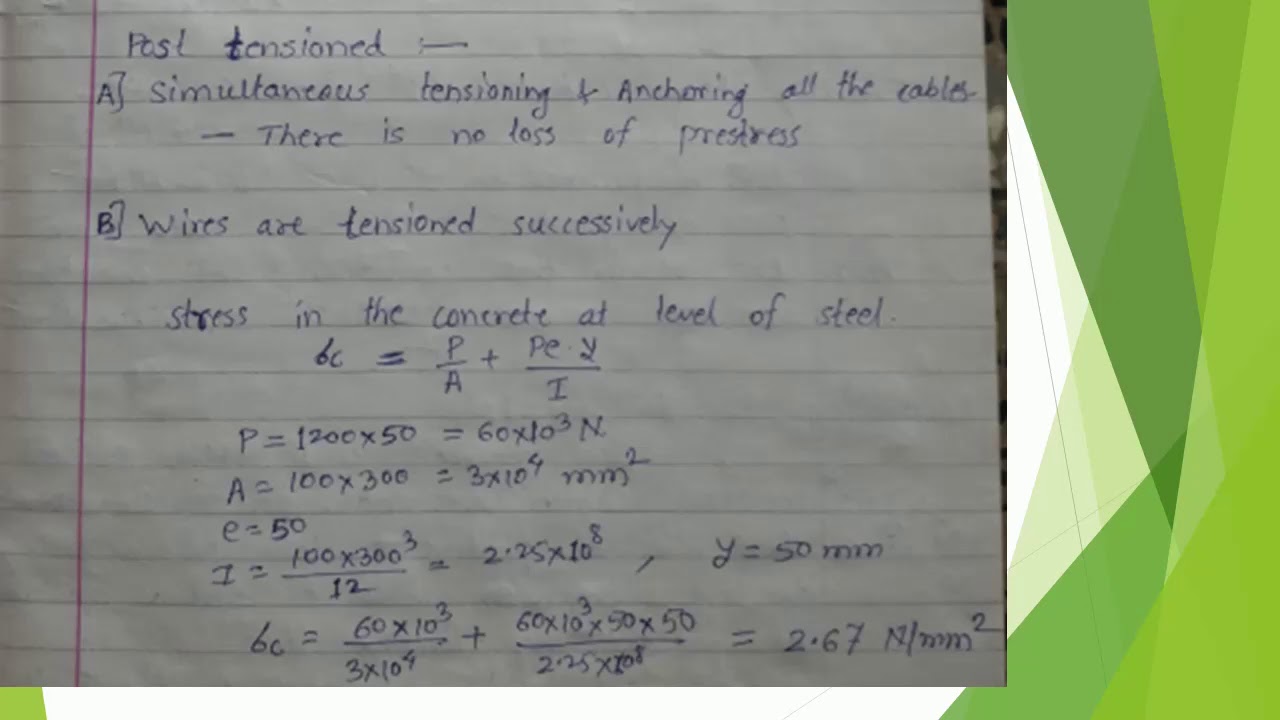 Post tensioned :—
A] Simultaneous tensioning & Anchoring all the cables.
— There is no loss of prestress
B] Wires are tensioned successively
stress in the concrete at level of steel.
σc = P/A + Pe.y/I
P = 1200×50 = 60×10³ N
A = 100×300 = 3×10⁴ mm²
e = 50
I = 100×300³/12 = 2.25×10⁸ , y = 50 mm
σc = 60×10³/3×10⁴ + 60×10³×50×50/2.25×10⁸ = 2.67 N/mm²